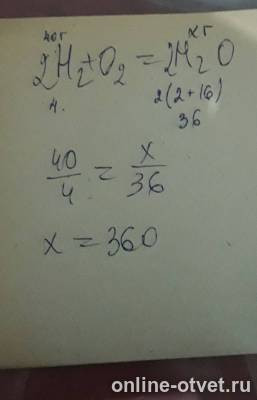 40г xг
2H₂+O₂=2H₂O
4. 2(2+16)
36
40/4 = x/36
x = 360
online-otvet.ru